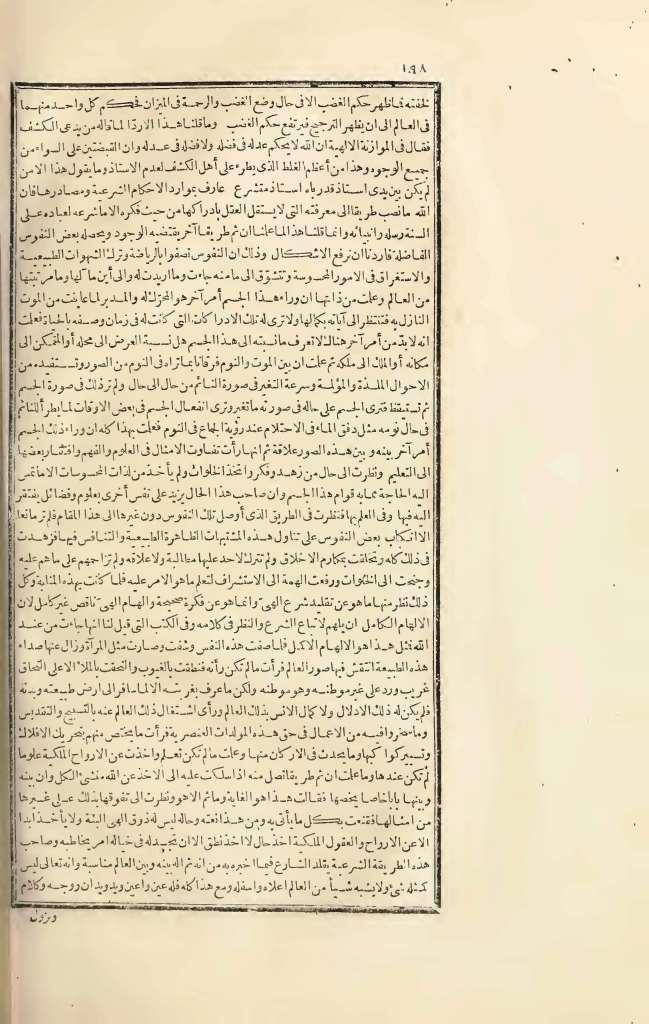 ١٩٨
خلقته فما ظهر حكم الغضب الا فى حال وضع الغضب والرحمة فى الميزان فحكم كل واحد منهما
فى العالم الى ان يظهر الترجيح فيرتفع حكم الغضب وما قلنا هذا الا ردا لما قاله من يدعى الكشف
فقال فى الموازنة الالهية ان الله لا يحكم عدله فى فضله ولا فضله فى عدله وان القبضتين على السواء من
جميع الوجوه وهذا من أعظم الغلط الذى يطرء على أهل الكشف لعدم الاستاذ وما يقول هذا الا من
لم يكن بين يدى استاذ قدرباه استاذ متشرع عارف بموارد الاحكام الشرعية ومصادرها فان
الله ما نصب طريقا الى معرفته التى لا يستقل العقل بادراكها من حيث فكره الا ما شرعه لعباده على
السنة رسله وانبيائه وانما قلنا هذا لما علمنا ان ثم طريقا آخر يقتضيه الوجود ويحصله بعض النفوس
الفاضلة فاردنا ان نرفع الاشكال وذلك ان النفوس تصفو بالرياضة وترك الشهوات الطبيعية
والاستغراق فى الامور المحسوسة وتتشوق الى ما منه جاءت وما اريدت له والى أين ما لها وما مرتبتها
من العالم وعلمت من ذاتها ان وراء هذا الجسم أمر آخر هو المحرك له والمدبر لما عاينت من الموت
النازل به فتنظر الى آياته بكمالها ولا ترى له تلك الادراكات التى كانت له فى زمان وصفه بالحياة فعلمت
انه لابد من أمر آخر هنالك لا تعرف ما نسبته الى هذا الجسم هل نسبة العرض الى محله أو المتمكن الى
مكانه أو الملك الى ملكه ثم علمت ان بين الموت والنوم فرقانا بما تراه فى النوم من الصور وتستفيده من
الاحوال الملذة والمؤلمة وسرعة التغير فى صورة النائم من حال الى حال ولم تر ذلك فى صورة الجسم
ثم تستيقظ فترى الجسم على حاله فى صورته ما تغير وترى انفعال الجسم فى بعض الاوقات لما يطرأ للنائم
فى حال نومه مثل دفق الماء فى الاحتلام عند رؤية الجماع فى النوم فعلمت بهذا كله ان وراء ذلك الجسم
أمر آخر بينه وبين هذه الصور علاقة ثم انها رأت تفاوت الامثال فى العلوم والفهم وافتقار بعضها
الى التعليم ونظرت الى حال من زهد وفكر واتخذ الخلوات ولم يأخذ من لذات المحسوسات الا ما تمس
اليه الحاجة مما به قوام هذا الجسم وان صاحب هذا الحال يزيد على نفس أخرى بعلوم وفضائل يفتقر
اليه فيها وفى العلم بها فنظرت فى الطريق الذى أوصل تلك النفوس دون غيرها الى هذا المقام فلم تر مانعا
الا انكباب بعض النفوس على تناول هذه المشتهيات الظاهرة الطبيعية والتنافس فيها فزهدت
فى ذلك كله وتحلقت بمكارم الاخلاق ولم تترك لاحد عليها مطالبة ولا علاقة ولم تزاحمهم على ما هم عليه
وجنحت الى الخلوات ورفعت الهمة الى الاستشراف لتعلم ما هو الامر عليه فلما كانت بهذه المثابة وكل
ذلك نظر منها ما هو عن تقليد شرع الهى وانما هو عن فكرة صحيحة والهام الهى ناقص غير كامل لان
الالهام الكامل ان يلهم لاتباع الشرع والنظر فى كلامه وفى الكتب التى قيل لنا انها جاءت من عند
الله فمثل هذا هو الالهام الاكمل فلما صفت هذه النفس وشفت وصارت مثل المرآة وزال عنها صداء
هذه الطبيعة انتقش فيها صور العالم فرأت ما لم تكن رأته فنطقت بالغيوب والتحقت بالملا الاعلى التحاق
غريب ورد على غير موطنه وهو موطنه ولكن ما عرف بغربته الا لما سافر الى ارض طبيعته وبدنه
فلم يكن له ذلك الادلال ولا كمال الانس بذلك العالم ورأى اشتغال ذلك العالم عنه بالتسبيح والتقديس
وما سخروا فيه من الاعمال فى حق هذه المولدات العنصرية فرأت ما يختص منهم بتحريك الافلاك
وتسيير كواكبها وما يحدث فى الاركان منها وعلمت ما لم تكن تعلم واخذت عن الارواح الملكية علوما
لم تكن عندها وما علمت ان ثم طريقا تصل منه اذا سلكت عليه الى الاخذ عن الله منشئ الكل وان بينه
وبينها بابا خاصا يخصها فقالت هذا هو الغاية وما ثم الا هو ونظرت الى تفوقها بذلك على غيرها
من امثالها فقنعت بكل ما يأتى به ومن هذا نعته وحاله ليس له ذوق الهى البتة ولا يأخذ ابدا
الا عن الارواح والعقول الملكية اخذ حال لا اخذ نطق الا ان تجسد له فى خياله امر يخاطبه وصاحب
هذه الطريقة الشرعية يقلد الشارع فيما اخبره به من انه ثم اله بينه وبين العالم مناسبة وانه تعالى ليس
كمثله شئ ولا يشبه شيأ من العالم اعلاه واسفله ومع هذا كله فله عين واعين ويد ويدان ووجه وكلام
ونزول